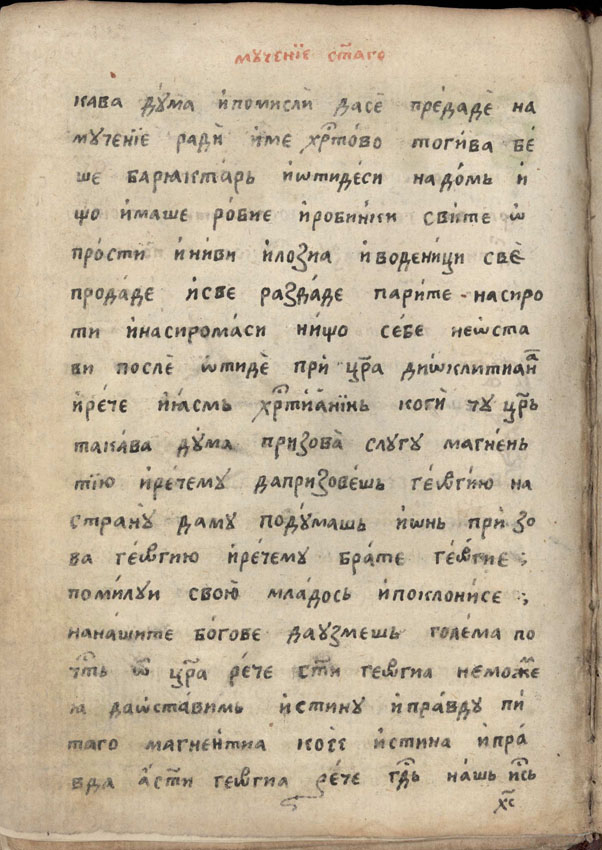 мꙋченїе ст҃аго
кава дꙋ́ма и҆помисли̇̀ дасе̇̀ пре́даде̇̀ на
мꙋченїе ради̇̀ и҆́ме хрⷭ҇то́во тоги́ва бе́
ше барѧкта́рь и҆ѡтидеси надо́мь и҆
що и҆маше ро́бие и҆роби́нки сви́те ѡ҆
про́сти и҆ни́ви и҆лозиа и҆воде́ници све̇̀
прода́де и҆све разда́де пари́те насиро
ти и҆насирома́си ни́що се́бе неѡ҆ста
ви после̇̀ ѡ҆тиде̇̀ при̇̀ цр҃а диѡ҆клитиана
и҆ре́че и҆ꙗ҆́смь хрⷭ҇тиа҆ни́нь коги̇̀ чꙋ цр҃ь
така́ва дꙋ́ма призова̇̀ слꙋгꙋ магне́нь
тїю и҆ре́чемꙋ дапризове́шь гео́ѡгию на
странꙋ̀ дамꙋ подꙋ́машь и҆ѡ́нь при̇̀зо
ва геѡ́гию и҆ре́чемꙋ бра́те геѡ́гие ;
поми́лꙋи свою̀ мла́дось и҆покло́нисе ;
нана́шите бо́гове даꙋ́змешь голе́ма по
чⷭ҇ть ѿ цр҃а ре́че ст҃и геѡ́гиа немо́же
м даѡ҆ста́вимь и҆стинꙋ и҆пра́вдꙋ пи̇̀
таго магне́нтиа коꙗ҆ и҆стина и҆пра́
вда а҆ст҃и геѡ́гиа ре́че гдⷭ҇ь на́шь і҆с҃ь
хс҃